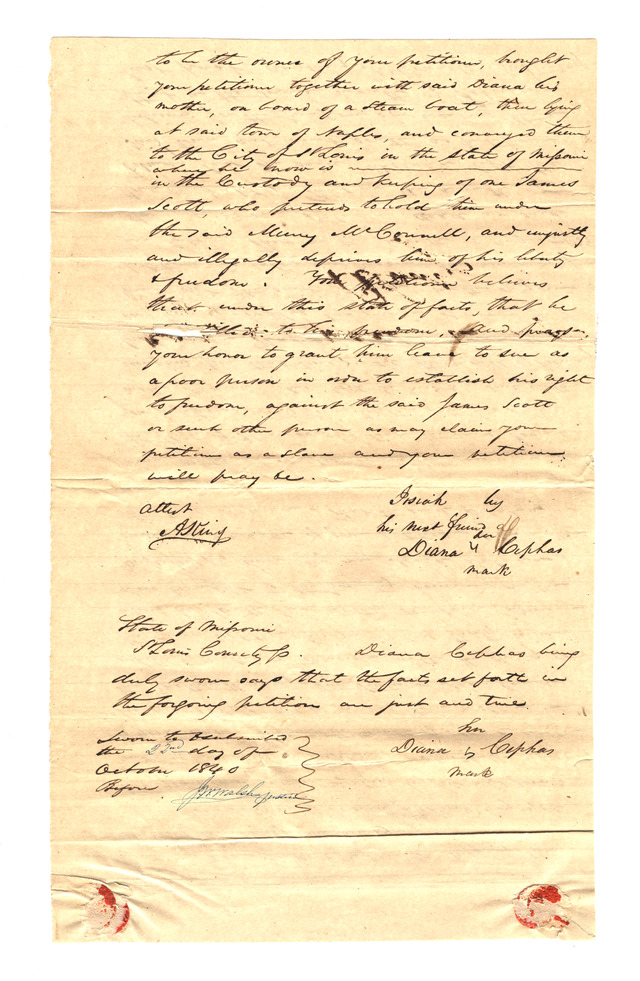 to be the owner of your petitioner, brought
your petitioner together with said Diana his
mother, on board of a steam boat, then lying
at said town of Naples, and conveyed them
to the City of St Louis in the state of Missouri
where he now is
in the Custody and keeping of one James
Scott, who pretends to hold him under
the said Murry McConnell, and unjustly
and illegally deprives him of his liberty
& freedom. Your petitioner believes
that under this state of facts, that he
to his freedom, and prays,
your honor to grant him leave to sue as
a poor person in order to establish his right
to freedom, against the said James Scott
or such other person as may claim your
petition as a slave and your petitioner
will pray &c.
Attest
AKing
Isiah by
his next friend
her
Diana Cephas
mark
State of Missouri
St Louis County ss. Diana Cephas being
duly sworn says that the facts set forth in
the forgoing petition are just and true.
Sworn to & subscribed
the 22nd day of
October 1840
Before
her
Diana Cephas
mark